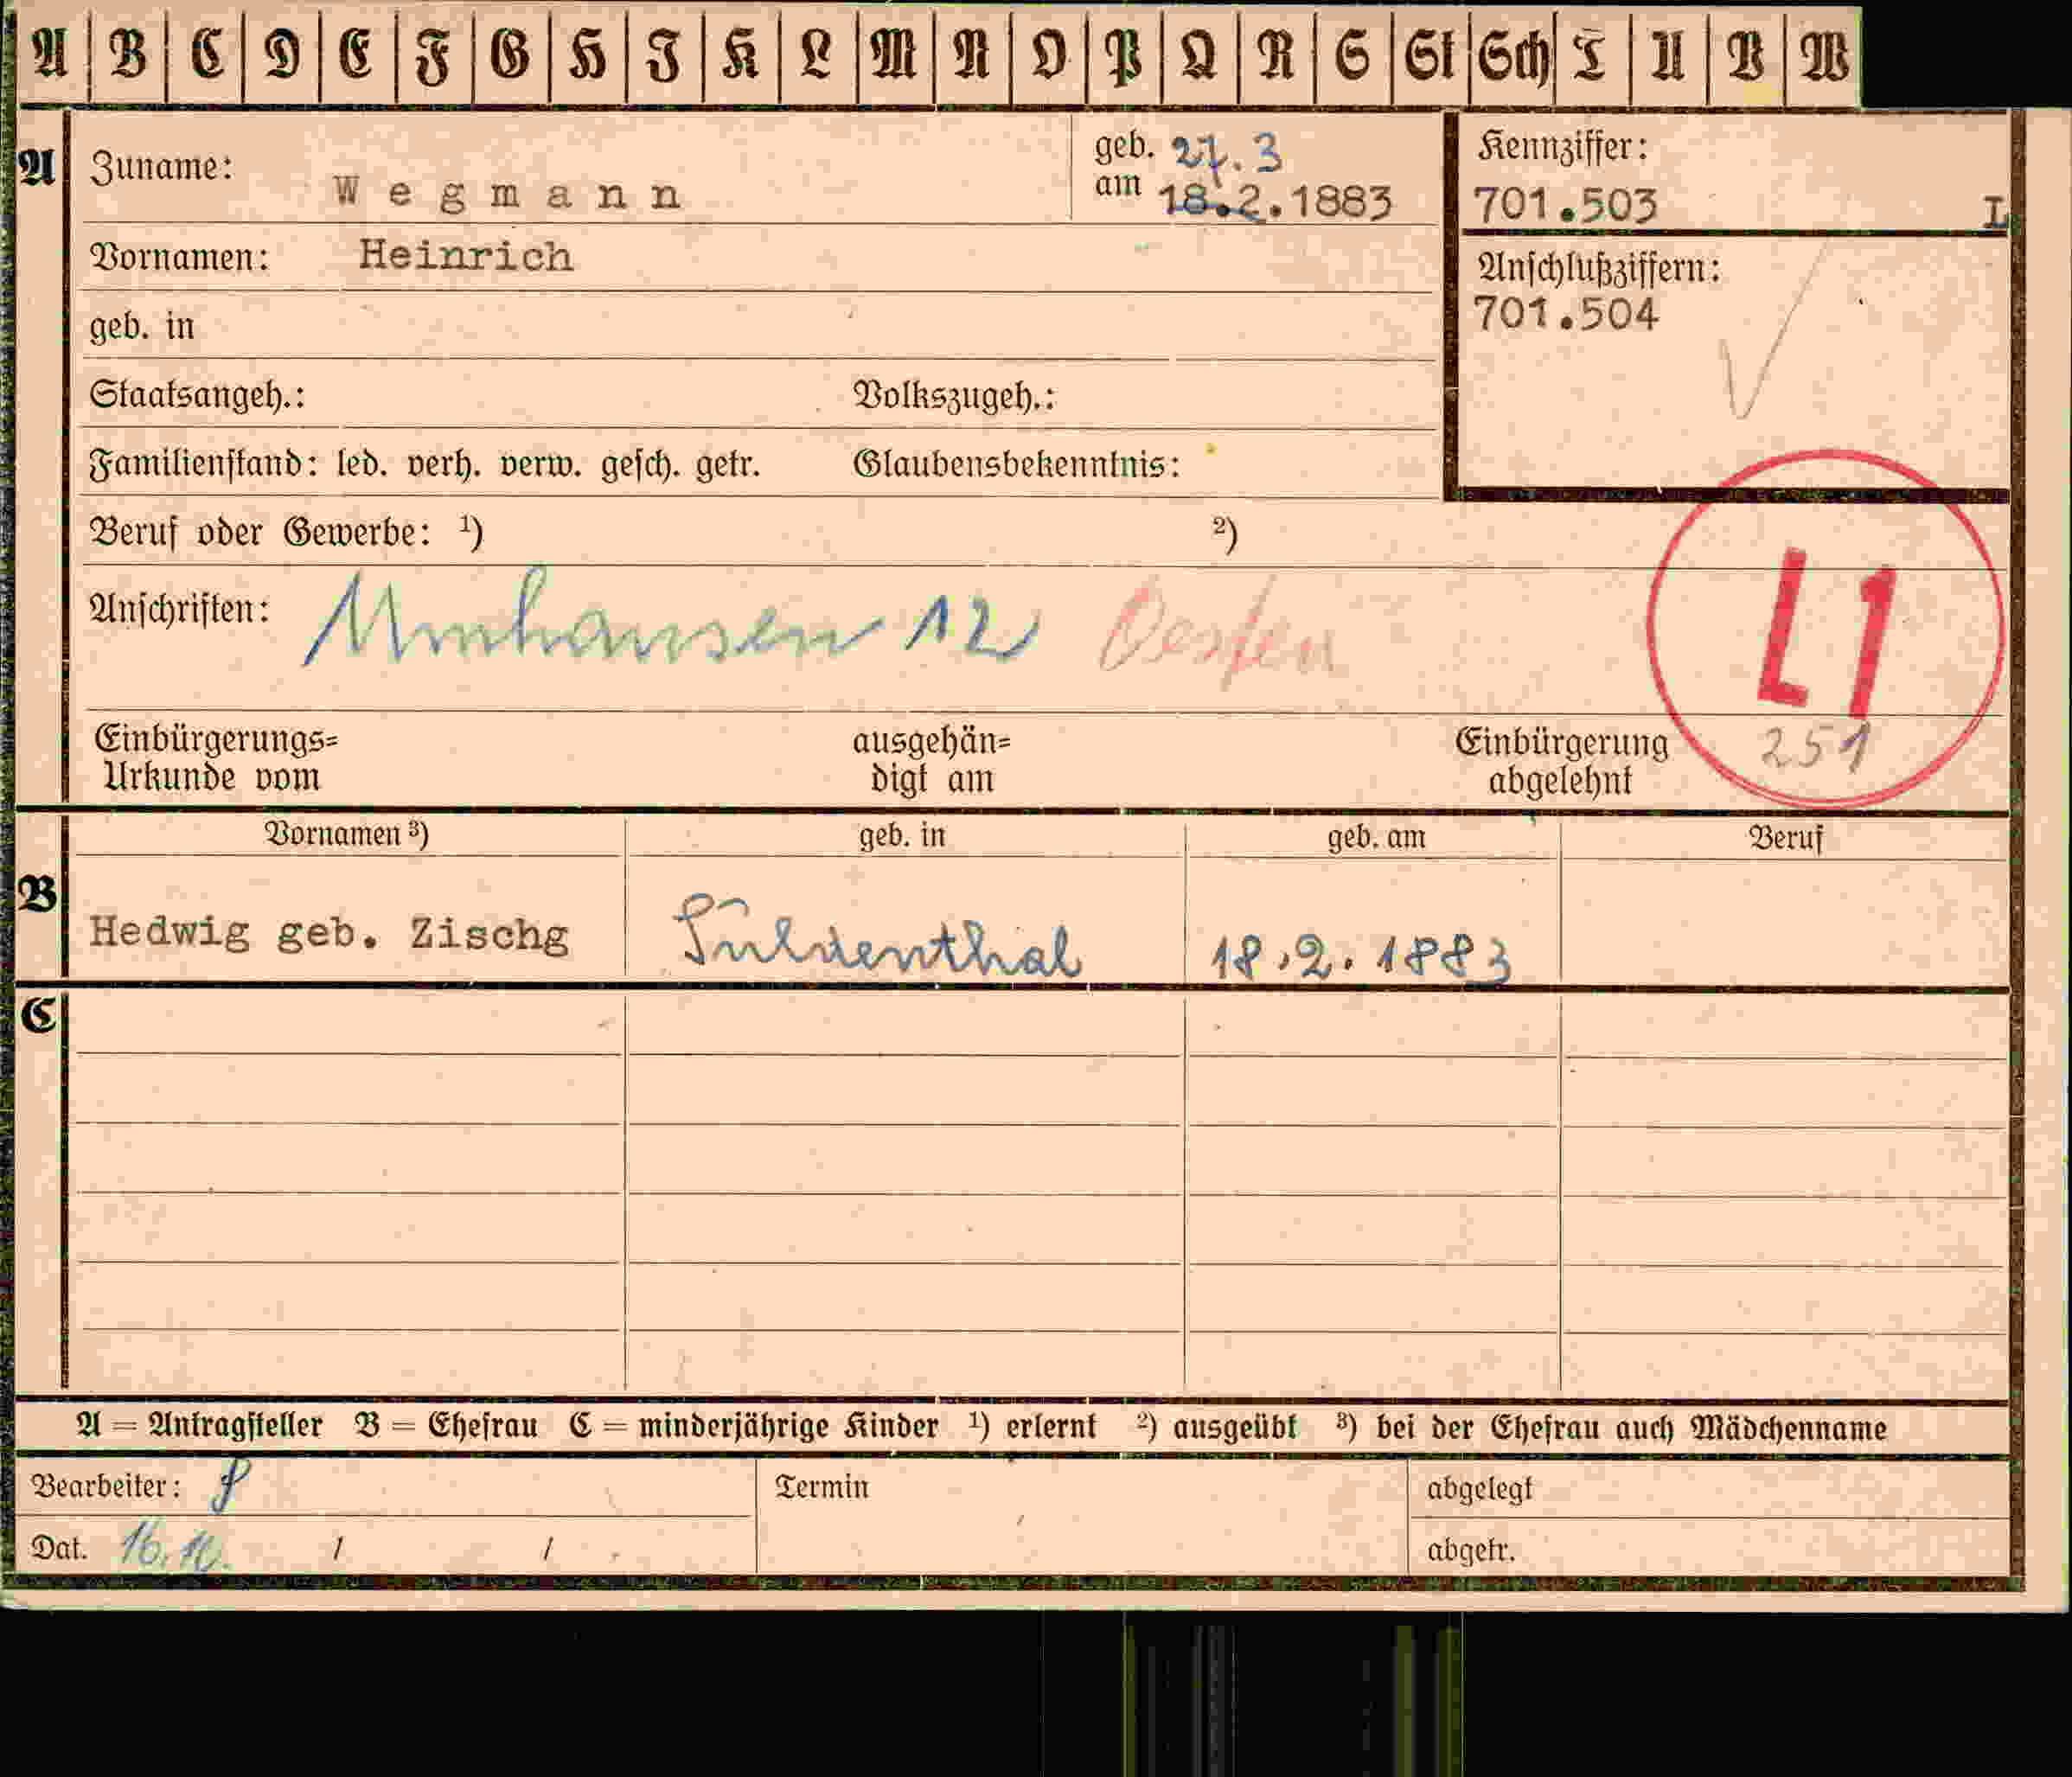 A B C D E F G H I K L M N O P Q R S St Sch T U V W
A Zuname: Wegmann geb. am 27.3 18.2.1883
Kennziffer:
701.503 L
Vornamen: Heinrich
Anschlußziffern:
701.504
geb. in
Staatsangeh.: Volkszugeh.:
Familienstand: led. verh. verw. gesch. getr. Glaubensbekenntnis:
Beruf oder Gewerbe: ¹) ²)
Anschriften: Umhausen 12 Oesten
L1
251
Einbürgerungs=
Urkunde vom
ausgehän=
digt am
Einbürgerung
abgelehnt
Vornamen ³) geb. in geb. am Beruf
B Hedwig geb. Zischg 18.2.1883
C
A = Antragsteller B = Ehefrau C = minderjährige Kinder ¹) erlernt ²) ausgeübt ³) bei der Ehefrau auch Mädchenname
Bearbeiter: Termin abgelegt
Dat. 16.10. / / abgetr.